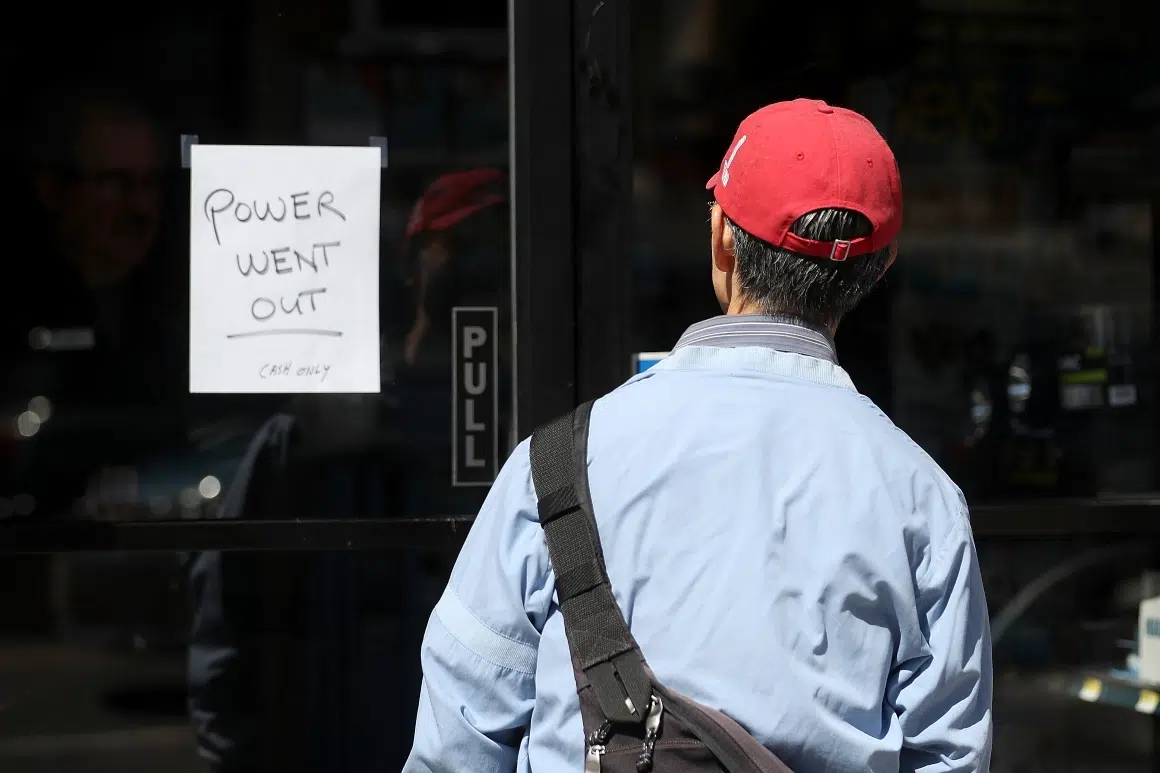 POWER
WENT
OUT
CASH ONLY
PULL